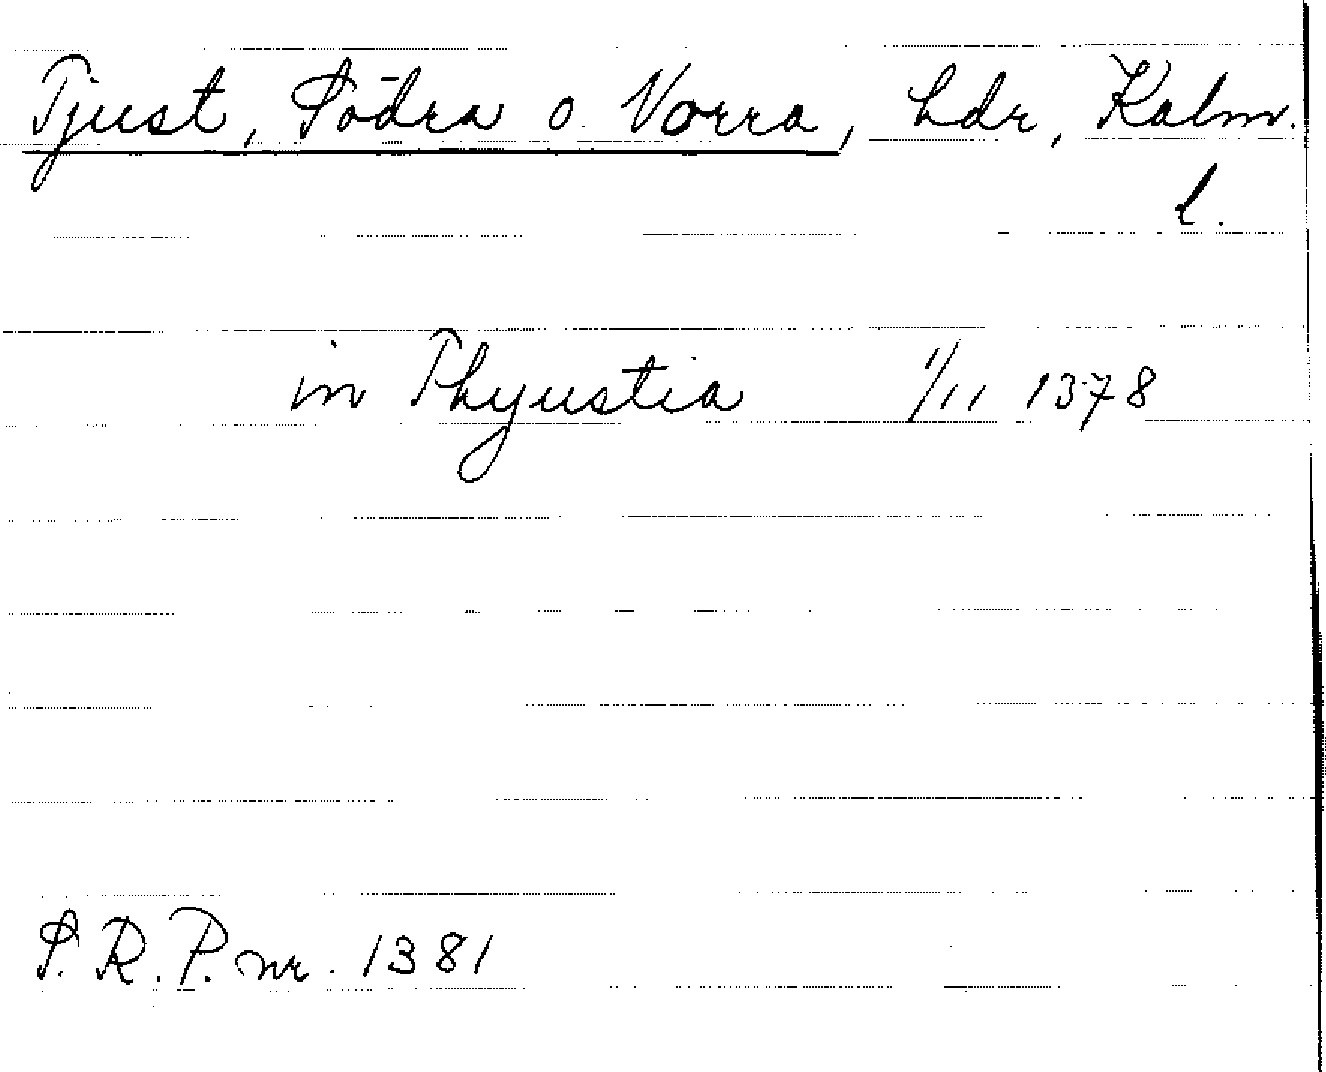 Tjust, Södra o. Norra, hdr, Kalm.
l.
in Thyustia 1/11 1378
S.R.P. nr. 1381